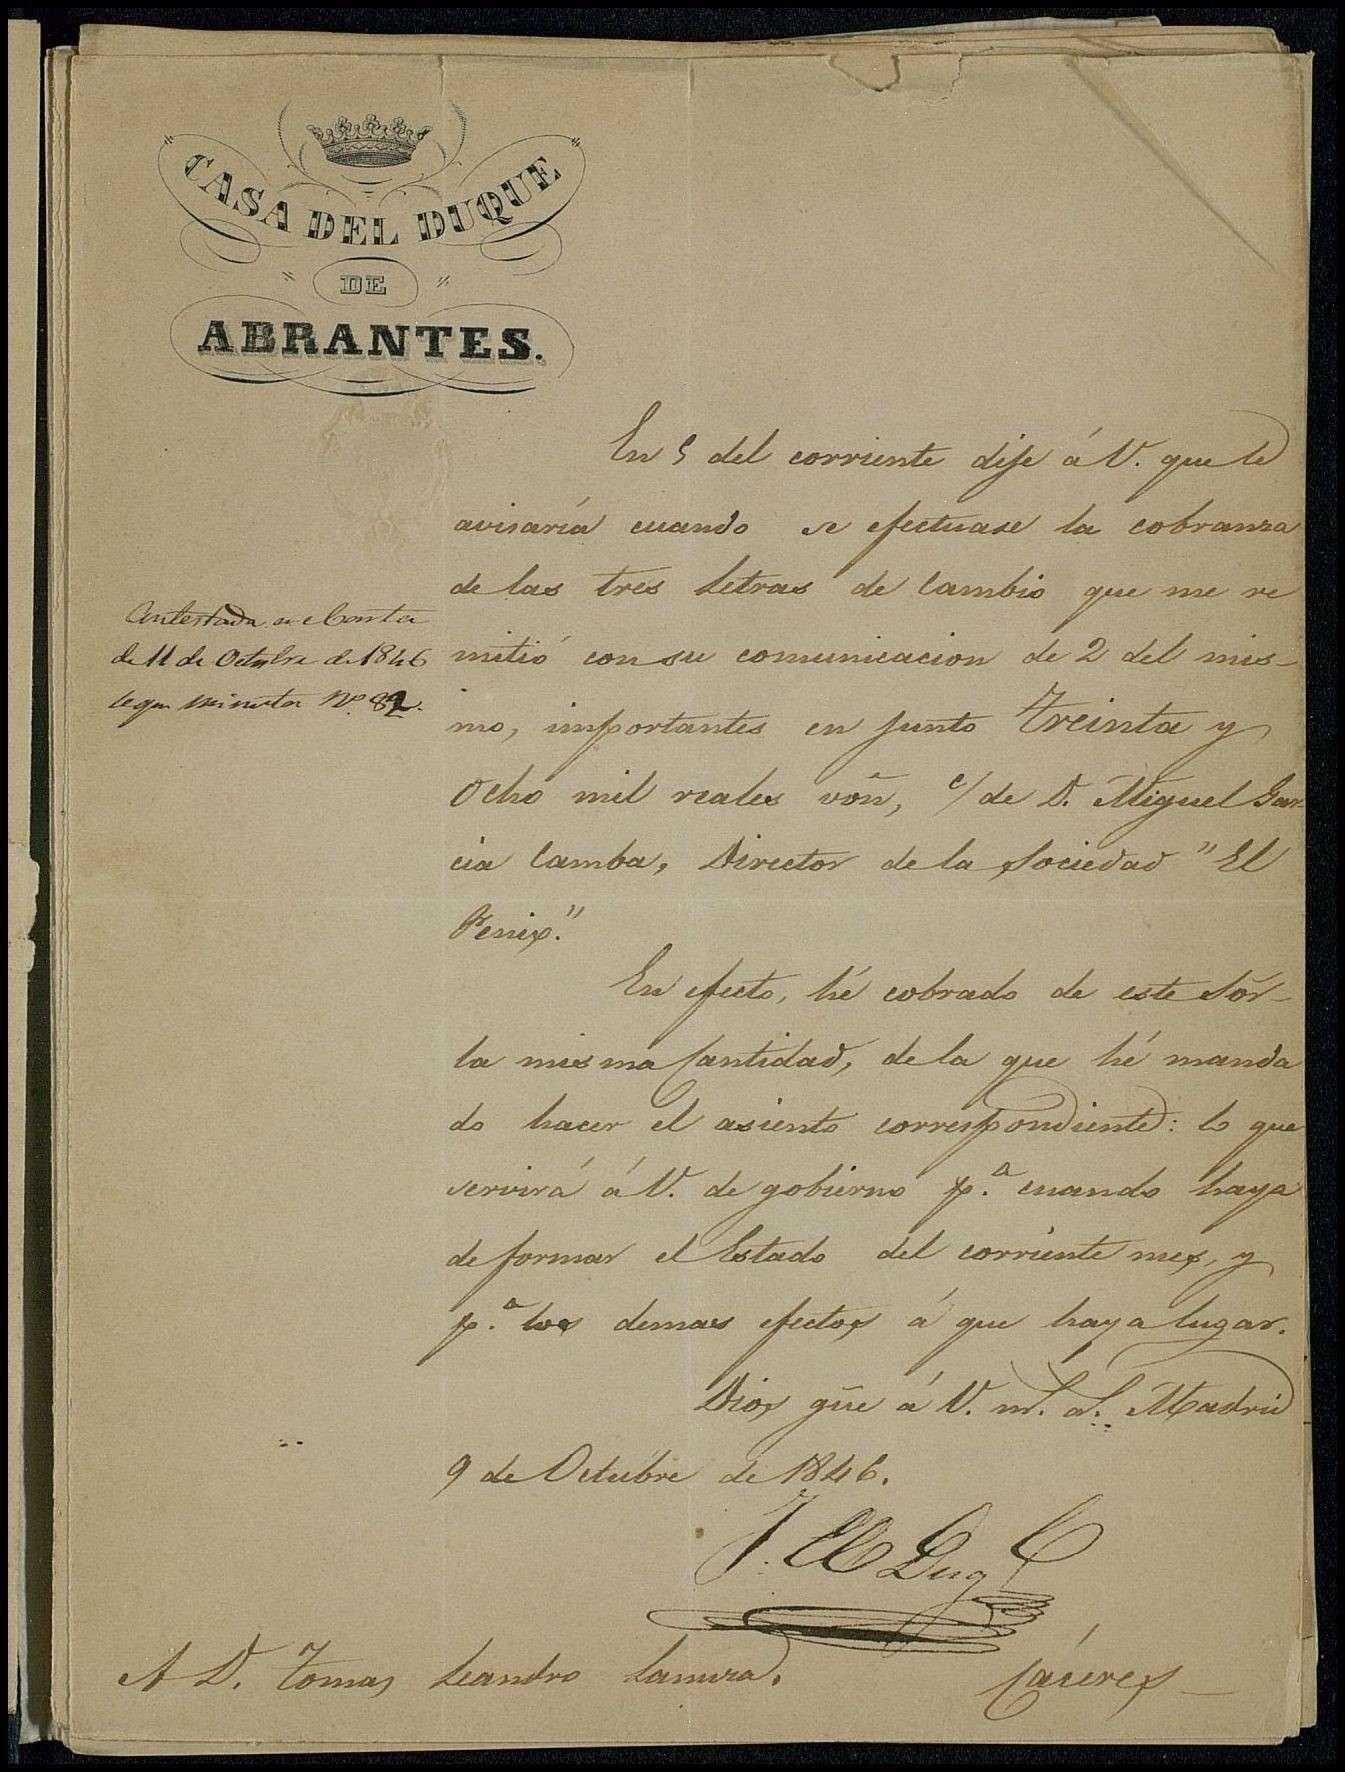 CASA DEL DUQUE
DE
ABRANTES.
En 5 del corriente dije á V. que le
avisaría cuando se efectuase la cobranza
de las tres letras de Cambio que me re
mitió con su comunicacion de 2 del mis-
mo, importantes en junto Treinta y
Ocho mil reales vón, c/ de D. Miguel Gar-
cia Camba, Director de la Sociedad "El
Fenix."
Contestada en
de 11 de Octubre de 1846
segun minuta Nº 82.
En efecto, hé cobrado de este Sõr
la misma Cantidad, de la que hé manda
do hacer el asiento correspondiente: lo que
servirá á V. de gobierno p.ª cuando haya
de formar el Estado del corriente mes, y
p.ª los demas efectos á que haya lugar.
Dios gũe á V. m. a. Madrid
9 de Octubre de 1846.
El Duq
A D. Tomas Leandro Cáceres